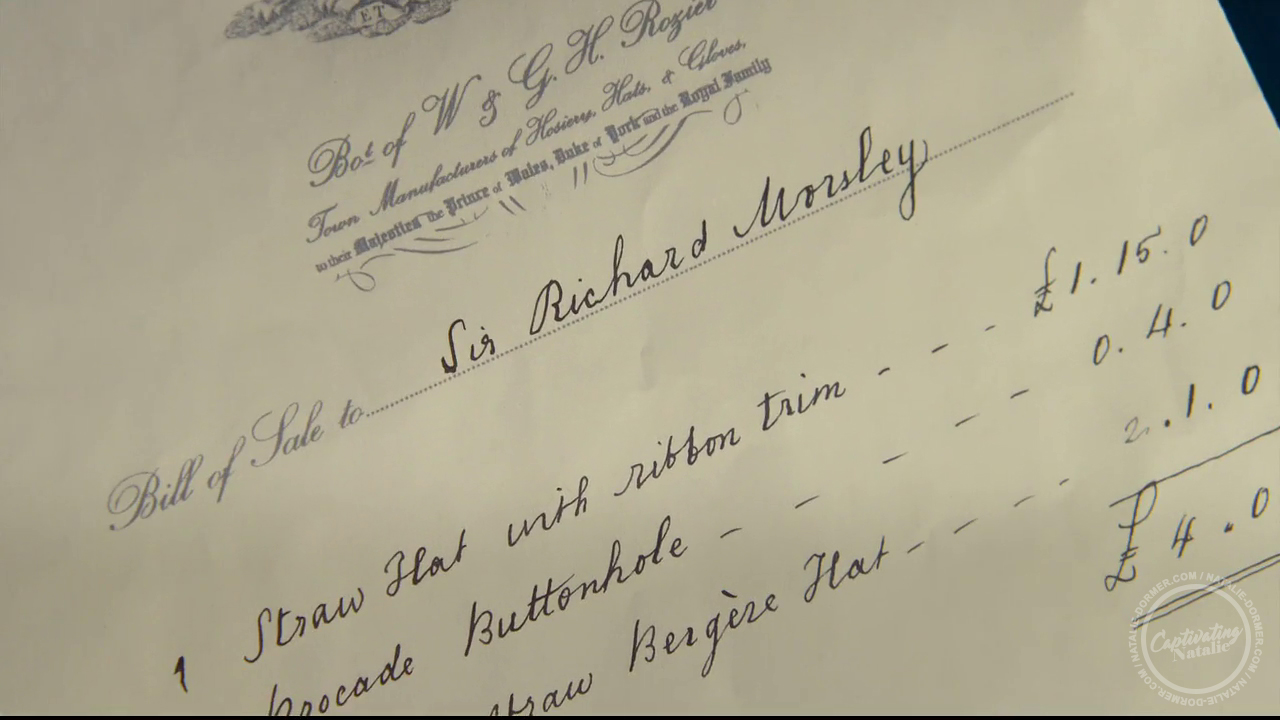 ET
Bot. of W & G. H. Rozier
Town Manufacturers of Hosiery, Hats, & Gloves,
to their Majesties the Prince of Wales, Duke of York and the Royal Family
Bill of Sale to Sir Richard Morsley
1 Straw Hat with ribbon trim - - - £1.15.0
brocade Buttonhole - - - - - 0.4.0
straw Bergère Hat - - - - 2.1.0
£4.0
Captivating
Natalie
NATALIE-DORMER.COM / NATALIE-DORMER.COM / NATALIE-DORMER.COM /